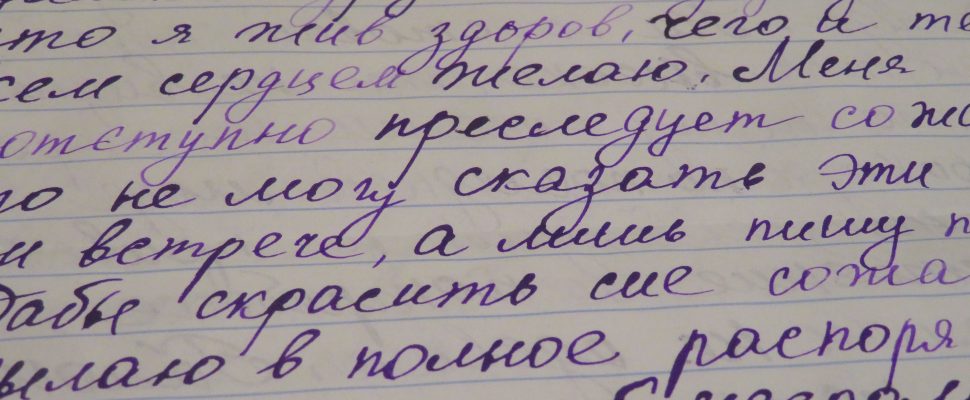 что я жив здоров, чего и те
сем сердцем желаю. Меня
отступно преследует сожа
то не могу сказать эти
и встрече, а лишь пишу п
дабы скрасить сие сожа
ылаю в полное распоря